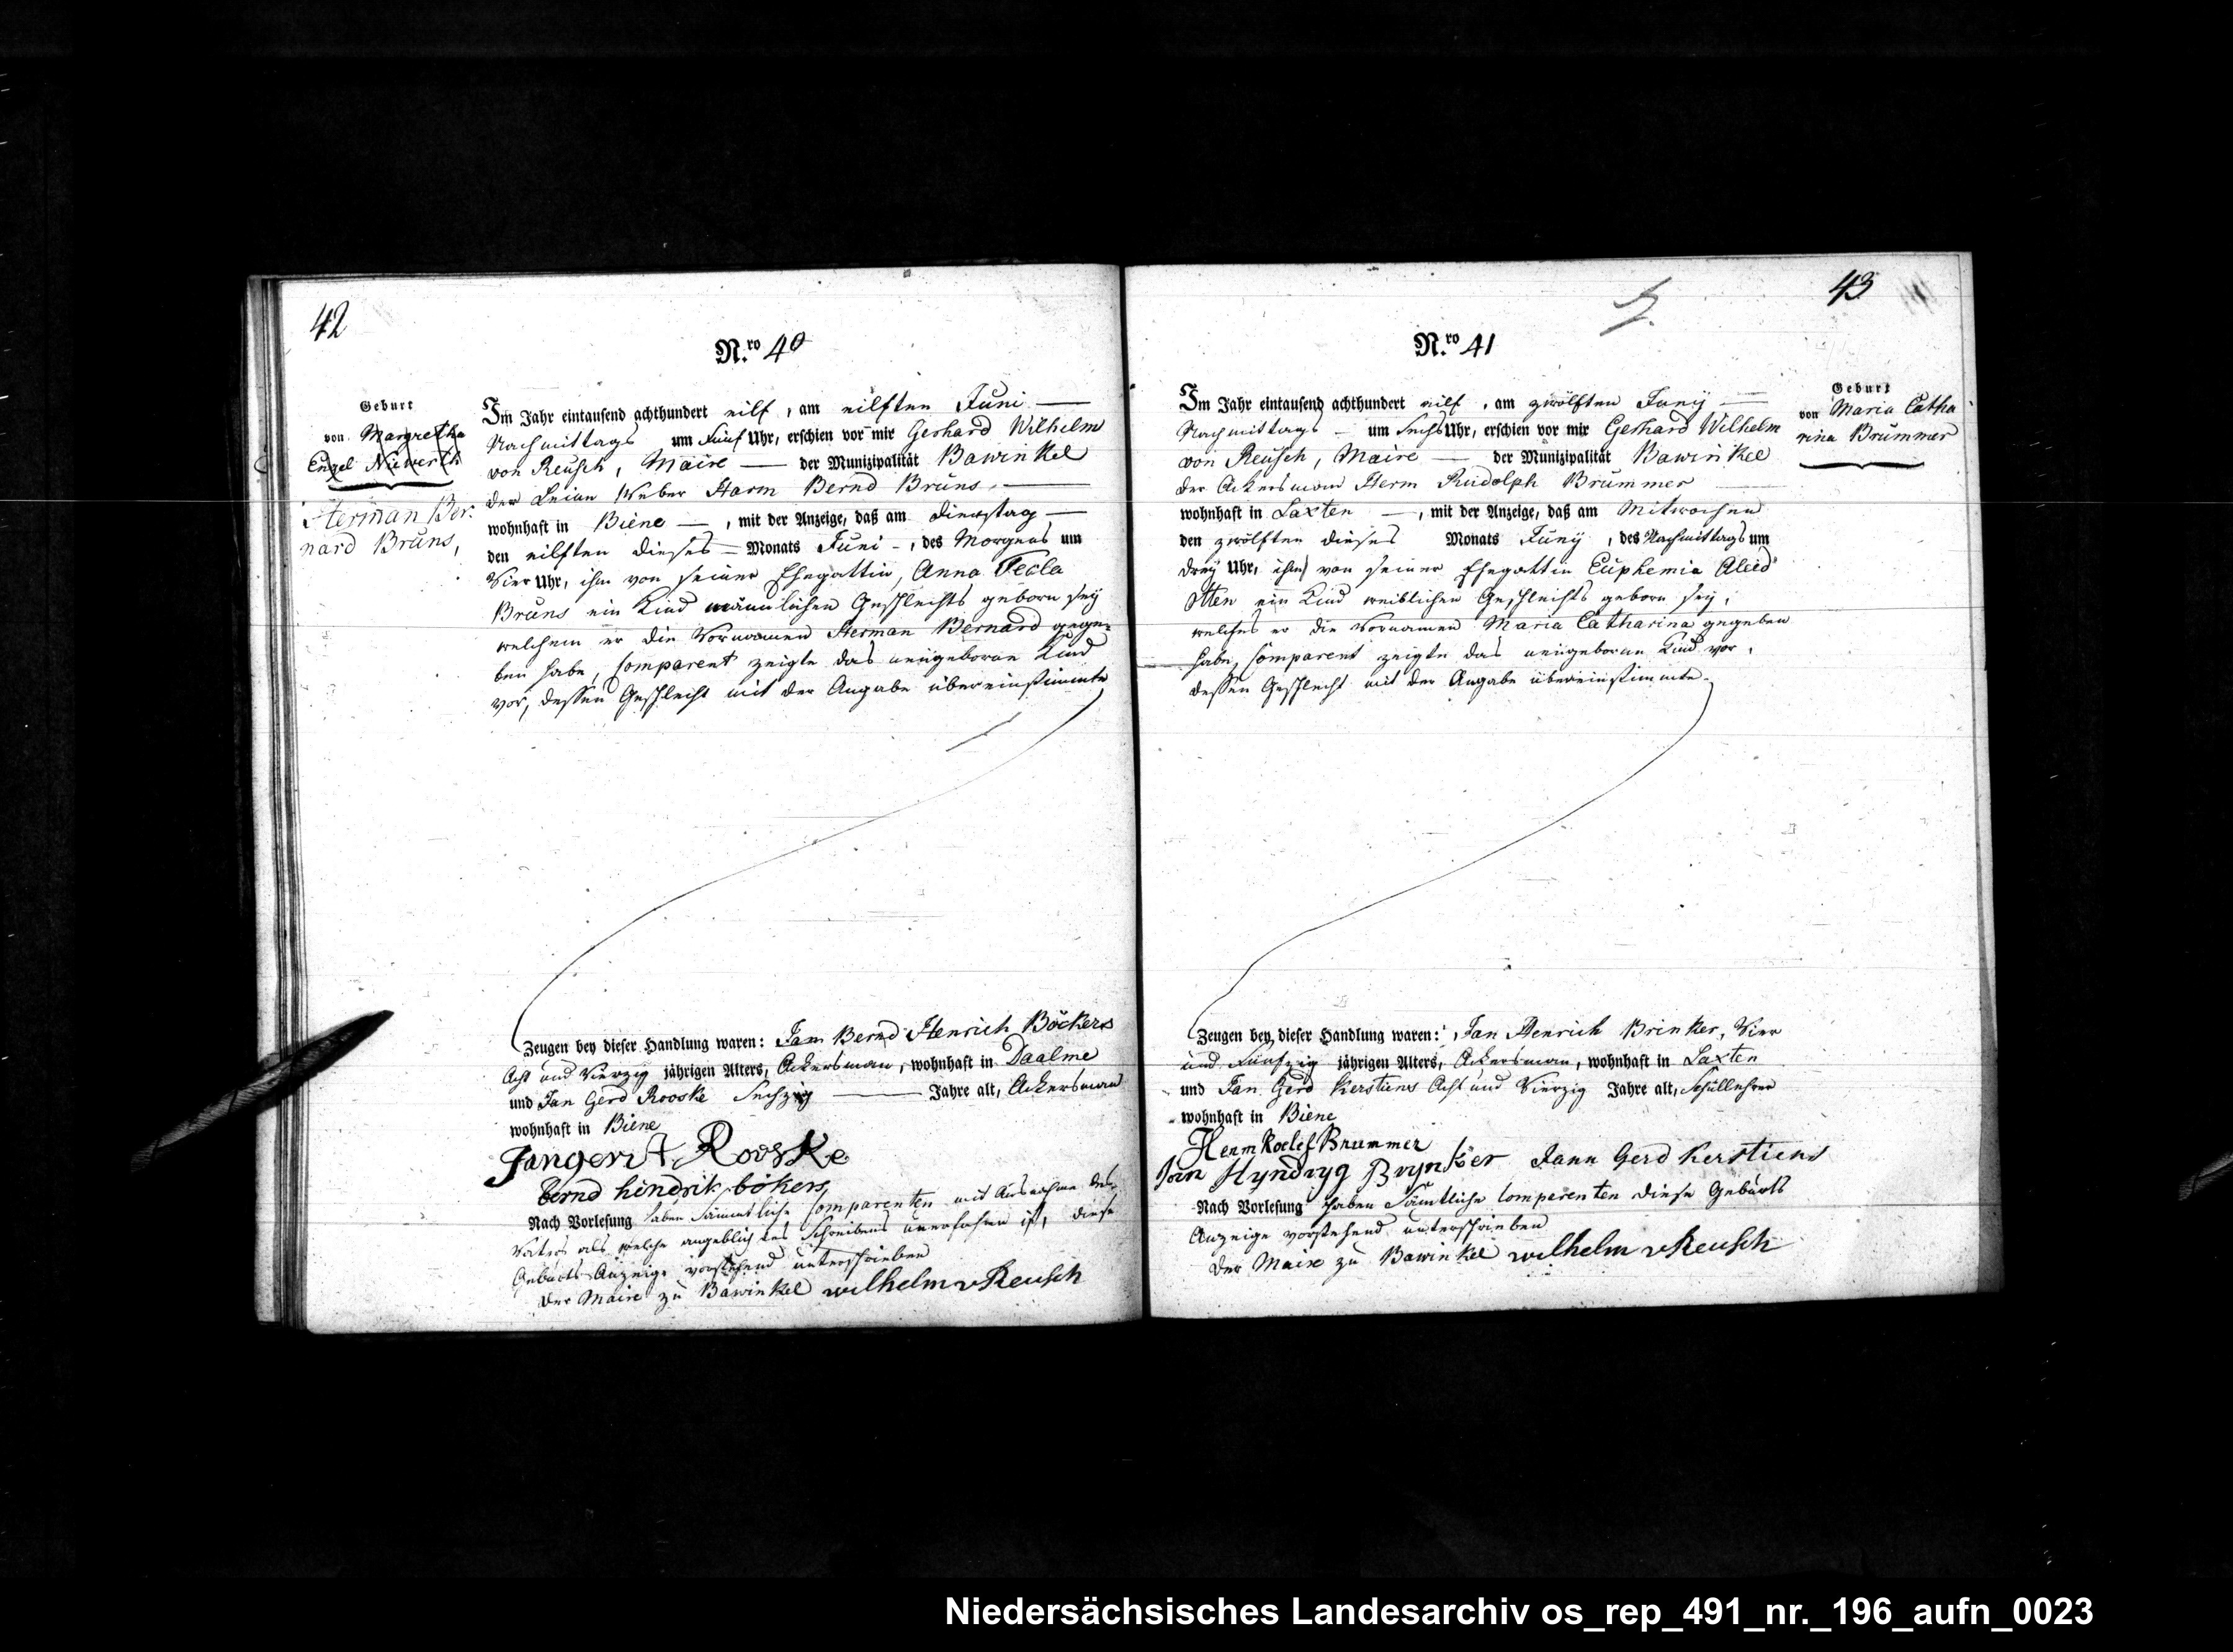 42
N.ro 40
Geburt
von Margretha
Engel Niewerth
Herman Ber:
nard Bruns,
Im Jahr eintausend achthundert eilf, am eilften Juni
Nachmittags um Fünf Uhr, erschien vor mir Gerhard Wilhelm
von Reusch, Maire der Munizipalität Bawinkel
der Leinen Weber Harm Bernd Bruns,
wohnhaft in Biene, mit der Anzeige, daß am Dienstag
den eilften dieses Monats Juni, des Morgens um
Vier Uhr, ihm von seiner Ehegattin, Anna Tecla
Bruns ein Kind männlichen Geschlechts geborn sey
welchem er die Vornamen Herman Bernard gege=
ben habe, Comparent zeigte das neugeborne Kind
vor, dessen Geschlecht mit der Angabe übereinstimmte
Zeugen bey dieser Handlung waren: Jan Bernd Henrich Böckers
Acht und Vierzig jährigen Alters, Ackersman, wohnhaft in Daalme
und Jan Gerd Rooske Sechzig Jahre alt, Ackersman
wohnhaft in Biene
Jangerit Rooske
bernd hindrik bökers
Nach Vorlesung haben sämmtliche Comparenten mit Ausnahme des
Vaters als welche angeblich des Schreibens unerfahren ist, diese
Geburts Anzeige vorstehend unterschrieben
Der Maire zu Bawinkel wilhelm v Reusch
43
N.ro 41
Geburt
von Maria Catha
rina Brümmer
Im Jahr eintausend achthundert eilf, am zwölften Juny
Nachmittags um Sechs Uhr, erschien vor mir Gerhard Wilhelm
von Reusch, Maire der Munizipalität Bawinkel
der Ackersman Herm Rudolph Brümmer
wohnhaft in Laxten, mit der Anzeige, daß am Mitwochen
den zwölften dieses Monats Juny, des Nachmittags um
drey Uhr, ihm von seiner Ehegattin Euphemia Aleid
Otten ein Kind weiblichen Geschlechts geborn sey,
welches er die Vornamen Maria Catharina gegeben
habe, Comparent zeigte das neugeborne Kind vor,
dessen Geschlecht mit der Angabe übereinstimmte.
Zeugen bey dieser Handlung waren: Jan Henrich Brinker, Vier
und Fünfzig jährigen Alters, Ackersman, wohnhaft in Laxten
und Jan Gerd Kerstiens Acht und Vierzig Jahre alt, Schullehrer
wohnhaft in Biene
Herm Roelef Brummer
Jan Hyndryg Brynker Jann Gerd Kerstiens
Nach Vorlesung haben Sämtliche Comparenten diese Geburts
Anzeige vorstehend unterschrieben
Der Maire zu Bawinkel wilhelm v Reusch
Niedersächsisches Landesarchiv os_rep_491_nr._196_aufn_0023